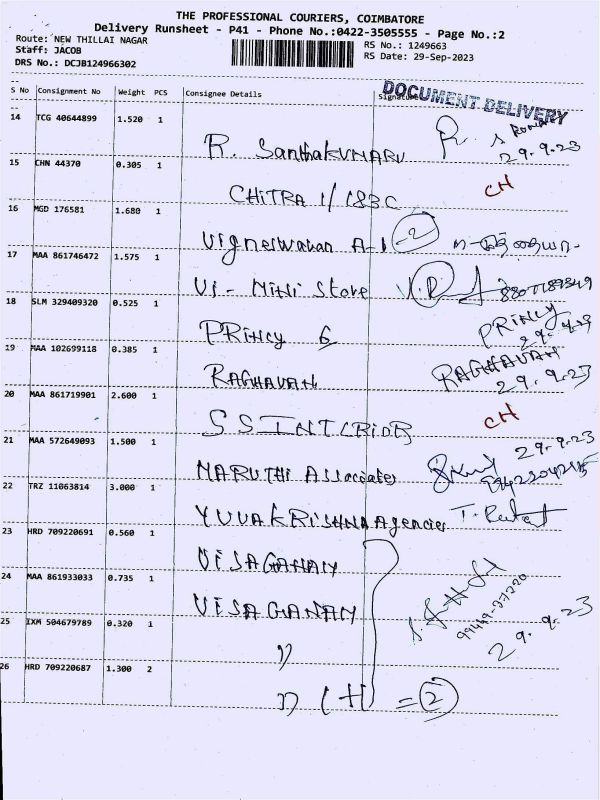 THE PROFESSIONAL COURIERS, COIMBATORE
Delivery Runsheet - P41 - Phone No.:0422-3505555 - Page No.:2
Route: NEW THILLAI NAGAR
RS No.: 1249663
Staff: JACOB
RS Date: 29-Sep-2023
DRS No.: DCJB124966302
DOCUMENT DELIVERY
S No Consignment No Weight PCS Consignee Details Signature
14 TCG 40644899 1.520 1
R. Santhakumari
29.9.23
15 CHN 44370 0.305 1
CH
CHITRA 1/183C
16 MGD 176581 1.680 1
Vigneswaran A-1 -2
17 MAA 861746472 1.575 1
VI - Mini Store
18 SLM 329409320 0.525 1
PRINCY G PRINCY
19 MAA 102699118 0.385 1
RAGHAVAN RAGHAVAN
29.9.23
20 MAA 861719901 2.600 1
CH
S S INTERIOR
21 MAA 572649093 1.500 1
29.9.23
MARUTHI Associates
22 TRZ 11063814 3.000 1
YUVAKRISHNA Agencies
23 HRD 709220691 0.560 1
VISAGANAN
24 MAA 861933033 0.735 1
VISAGANAN
99449-27220
29.9.23
25 IXM 504679789 0.320 1
"
26 HRD 709220687 1.300 2
" (+1) = 2